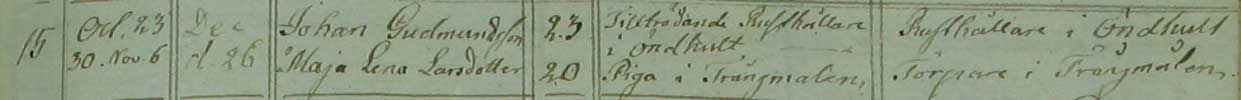 15 Oct. 23 Dec Johan Gudmundsson 23 Tillträdande Rusthållare Rusthållare i Öndhult
30. Nov. 6 d. 26 Maja Lena Larsdotter 20 i Öndhult
Piga i Trångmålen, Torpare i Trångmålen.